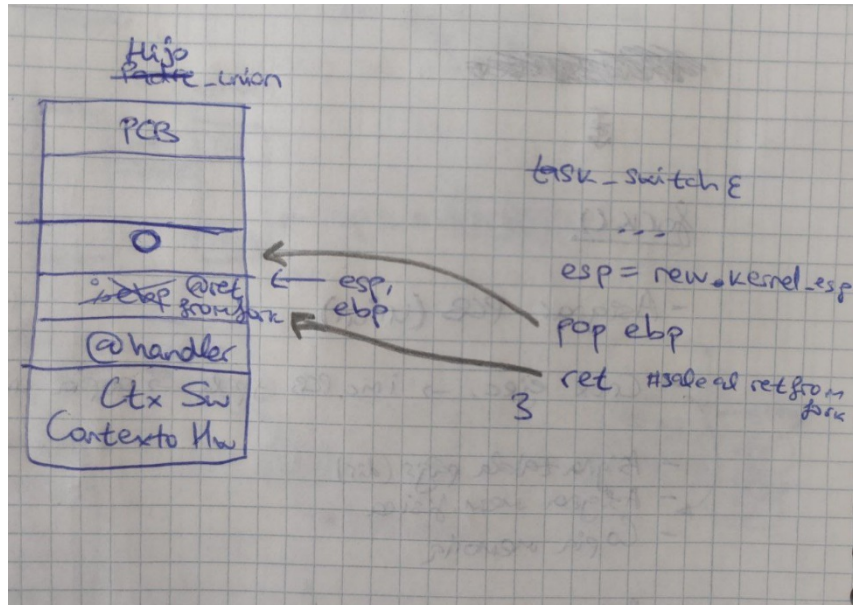 Hijo
Padre_union
PCB
0
@ret
from fork
@handler
Ctx Sw
Contexto Hw
← esp,
ebp
task_switch {
...
esp = new.kernel_esp
pop ebp
ret #sale al ret from
fork
}